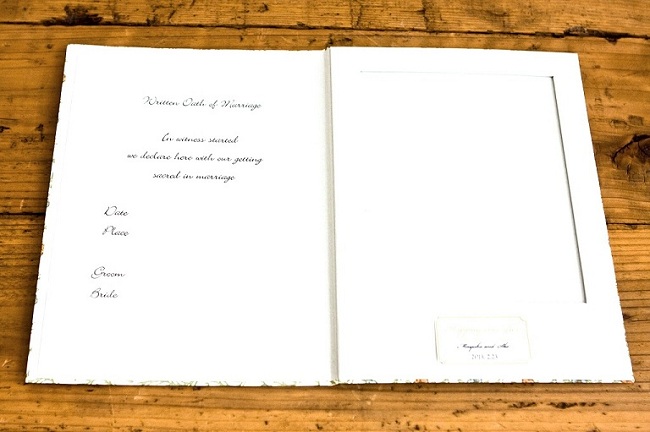 Written Oath of Marriage
In witness started
we declare here with our getting
sacred in marriage
Date
Place
Groom
Bride
and